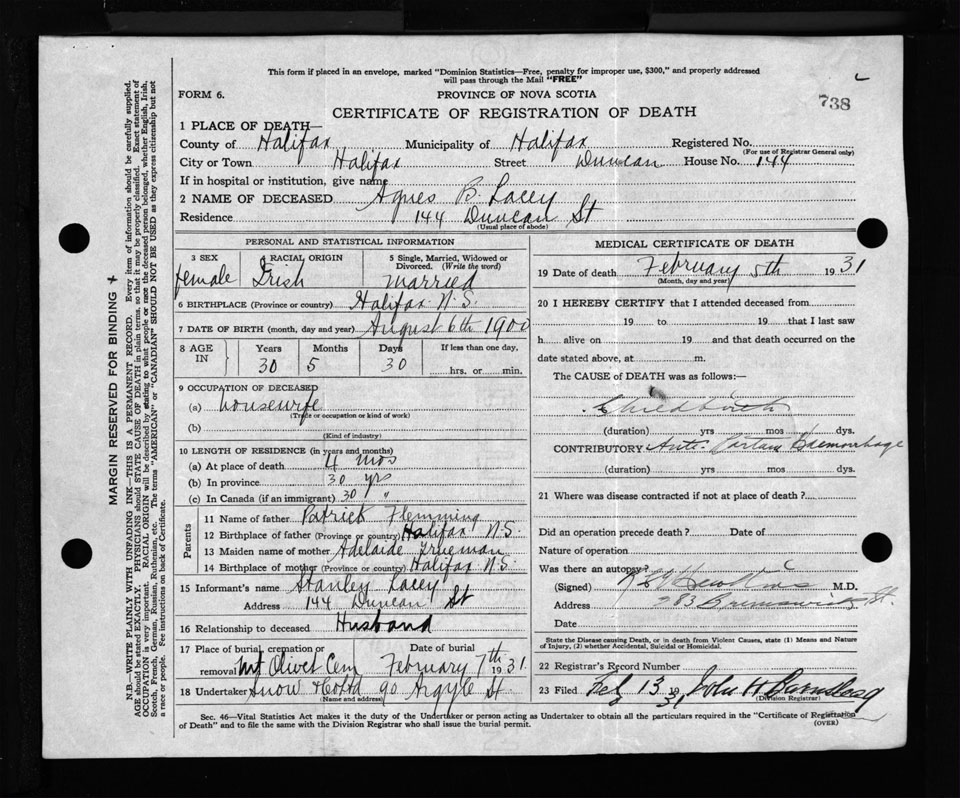 This form if placed in an envelope, marked "Dominion Statistics—Free, penalty for improper use, $300," and properly addressed
will pass through the Mail "FREE"
FORM 6.
PROVINCE OF NOVA SCOTIA
738
CERTIFICATE OF REGISTRATION OF DEATH
1 PLACE OF DEATH—
County of Halifax Municipality of Halifax Registered No.
(For use of Registrar General only)
City or Town Halifax Street Duncan House No. 144
If in hospital or institution, give name
2 NAME OF DECEASED Agnes B. Lacey
Residence 144 Duncan St
(Usual place of abode)
PERSONAL AND STATISTICAL INFORMATION
3 SEX RACIAL ORIGIN 5 Single, Married, Widowed or Divorced. (Write the word)
female Irish married
6 BIRTHPLACE (Province or country) Halifax N.S.
7 DATE OF BIRTH (month, day and year) August 6th 1900
8 AGE IN Years Months Days If less than one day,
30 5 30 hrs. or min.
9 OCCUPATION OF DECEASED
(a) housewife
(Trade or occupation or kind of work)
(b)
(Kind of industry)
10 LENGTH OF RESIDENCE (in years and months)
(a) At place of death 4 mos
(b) In province 30 yrs
(c) In Canada (if an immigrant) 30 "
Parents
11 Name of father Patrick Flemming
12 Birthplace of father (Province or country) Halifax N.S.
13 Maiden name of mother Adelaide Trueman
14 Birthplace of mother (Province or country) Halifax N.S.
15 Informant's name Stanley Lacey
Address 144 Duncan St
16 Relationship to deceased Husband
17 Place of burial, cremation or removal Date of burial
Mt Olivet Cem February 7th 1931.
18 Undertaker Snow & Co Ltd 90 Argyle St
(Name and address)
MEDICAL CERTIFICATE OF DEATH
19 Date of death February 5th 1931
(Month, day and year)
20 I HEREBY CERTIFY that I attended deceased from
19 to 19 that I last saw
h alive on 19 and that death occurred on the
date stated above, at m.
The CAUSE of DEATH was as follows:—
Childbirth
(duration) yrs mos dys.
CONTRIBUTORY Ante-Partum Haemorrhage
(duration) yrs mos dys.
21 Where was disease contracted if not at place of death?
Did an operation precede death? Date of
Nature of operation
Was there an autopsy?
(Signed) M.D.
Address 283 Brunswick St.
Date
State the Disease causing Death, or in death from Violent Causes, state (1) Means and Nature
of Injury, (2) whether Accidental, Suicidal or Homicidal.
22 Registrar's Record Number
23 Filed Feb 13 1931 John H Barnstead
(Division Registrar)
Sec. 46—Vital Statistics Act makes it the duty of the Undertaker or person acting as Undertaker to obtain all the particulars required in the "Certificate of Registration
of Death" and to file the same with the Division Registrar who shall issue the burial permit.
(OVER)
MARGIN RESERVED FOR BINDING
N.B.—WRITE PLAINLY WITH UNFADING INK—THIS IS A PERMANENT RECORD. Every item of information should be carefully supplied.
AGE should be stated EXACTLY. PHYSICIANS should STATE CAUSE OF DEATH in plain terms, so that it may be properly classified. Exact statement of
OCCUPATION is very important. RACIAL ORIGIN will be described by stating to what people or race the deceased person belonged, whether English, Irish,
Scotch, French, German, Russian, Ruthenian, etc. The terms "AMERICAN" or "CANADIAN" SHOULD NOT BE USED as they express citizenship but not
a race or people. See instructions on back of Certificate.